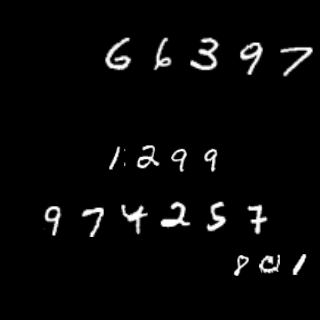 66397
1299
974257
801